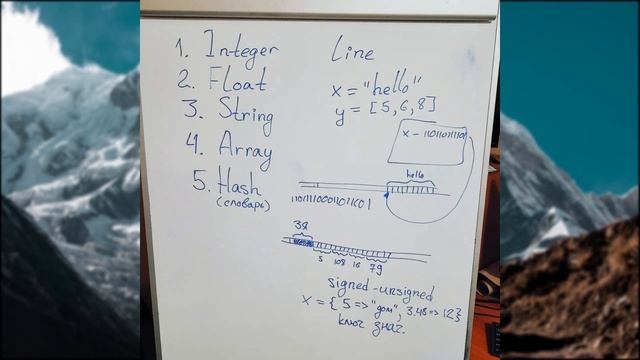 1. Integer
2. Float
3. String
4. Array
5. Hash
(словарь)
Line
x = "hello"
y = [5, 6, 8]
x - 11011011101
hello
38
5 108 16 79
signed-unsigned
x = { 5 => "дом", 3.48 => 12}
ключ знач.